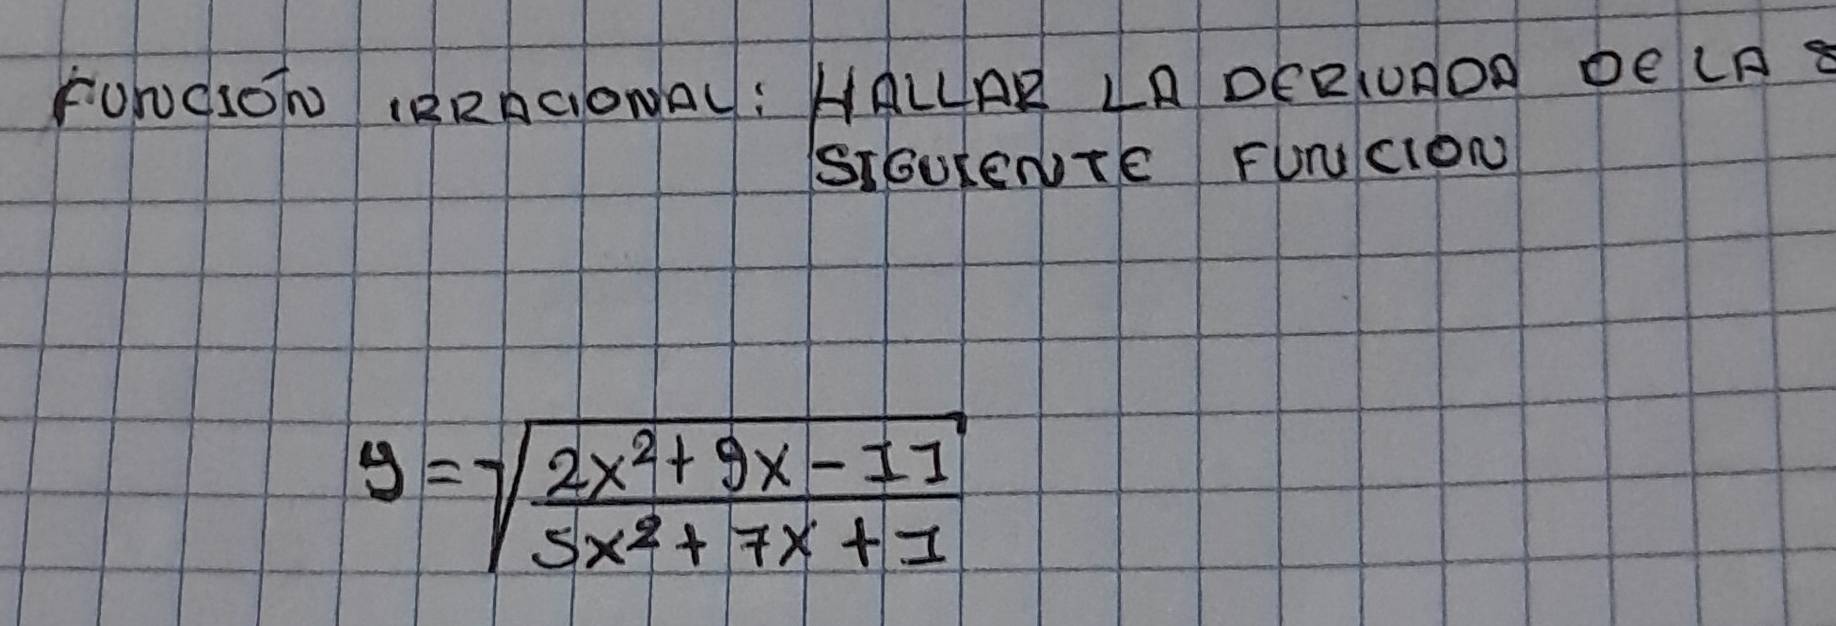 FUNCIÓN IRRACIONAL: HALLAR LA DERIVADA DE LA
SIGUIENTE FUNCION
y = √(2x² + 9x - 11 / 5x² + 7x + 1)